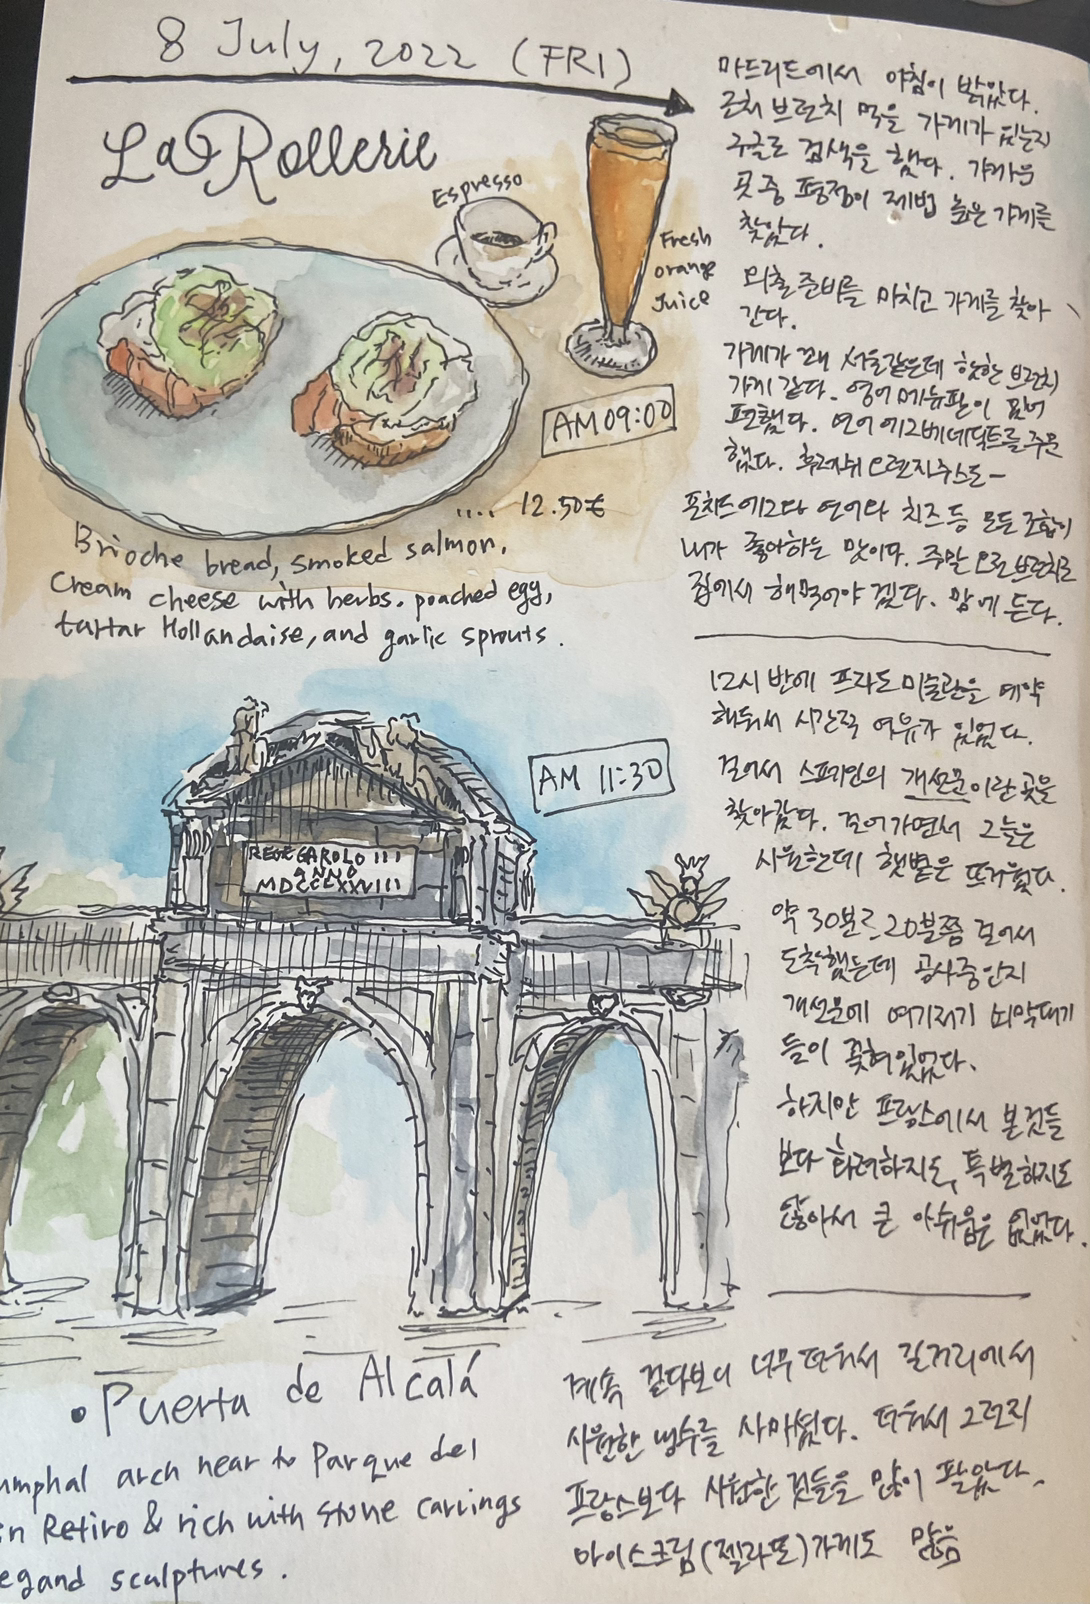 8 July, 2022 (FRI)
La Rollerie
Espresso
Fresh
orange
Juice
AM 09:00
.... 12.50€
Brioche bread, smoked salmon,
Cream cheese with herbs. poached egg,
tartar Hollandaise, and garlic sprouts.
마드리드에서 아침이 밝았다.
근처 브런치 먹을 가게가 있는지
구글로 검색을 했다. 가까운
곳 중 평점이 제법 높은 가게를
찾았다.
외출준비를 마치고 가게를 찾아
간다.
가게가 꽤 서울같은데 핫한 브런치
가게 같다. 영어 메뉴판이 있어
편했다. 연어 에그베네딕트를 주문
했다. 후레쉬 오렌지쥬스도-
포치드에그와 연어와 치즈 등 모든 조합이
내가 좋아하는 맛이다. 주말 오전 브런치로
집에서 해먹어야 겠다. 맘에 든다.
AM 11:30
REGE CAROLO III
ANNO
MDCCLXXVIII
12시 반에 프라도 미술관을 예약
해둬서 시간적 여유가 있었다.
걸어서 스페인의 개선문이란 곳을
찾아갔다. 걸어가면서 그늘은
시원한데 햇볕은 뜨거웠다.
약 30분 20분쯤 걸어서
도착했는데 공사중인지
개선문에 여기저기 쇠막대기
들이 꽂혀있었다.
하지만 프랑스에서 본 것들
보다 화려하지도, 특별하지도
않아서 큰 아쉬움은 없었다.
• Puerta de Alcalá
umphal arch near to Parque del
en Retiro & rich with stone carvings
egand sculptures.
계속 걷다보니 너무 더워서 길거리에서
시원한 냉수를 사마셨다. 더워서 그런지
프랑스보다 시원한 것들을 많이 팔았다.
아이스크림(젤라또)가게도 많음